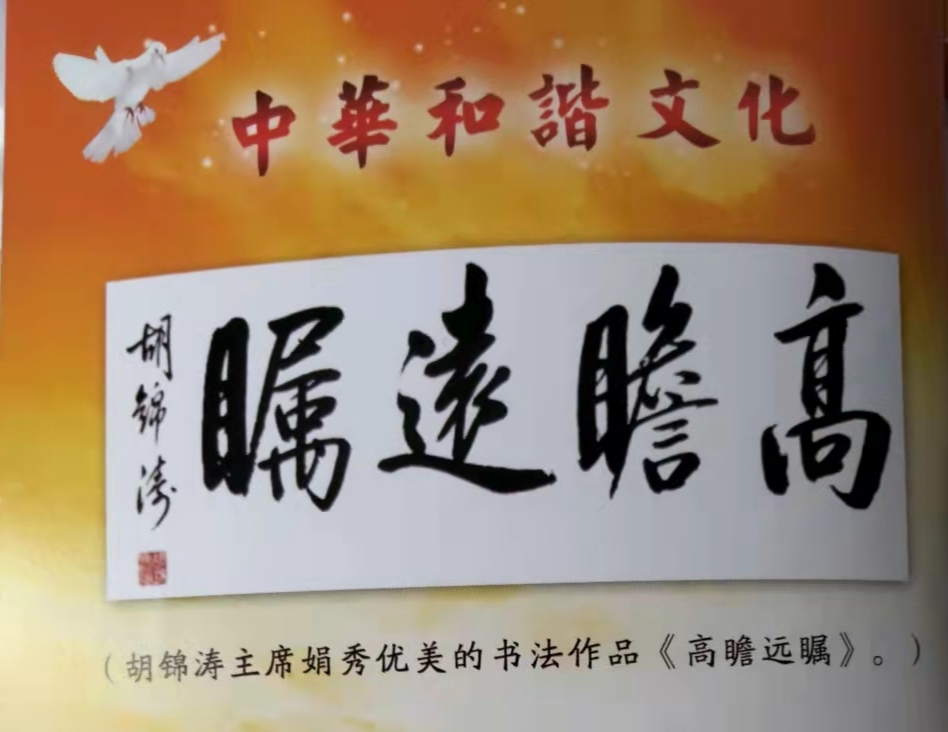 中華和諧文化
高瞻遠矚
胡錦濤
（胡锦涛主席娟秀优美的书法作品《高瞻远瞩》。）